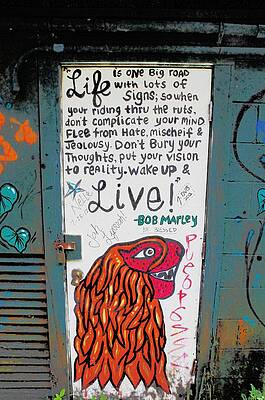 "Life is one Big road
with lots of
Signs; so when
your riding thru the ruts.
don't complicate your MIND
FLEE from Hate, mischeif &
Jealousy. Don't Bury your
Thoughts, put your vision
to reality. wake up &
Live!"
-BOB MARLEY
BE BLESSED